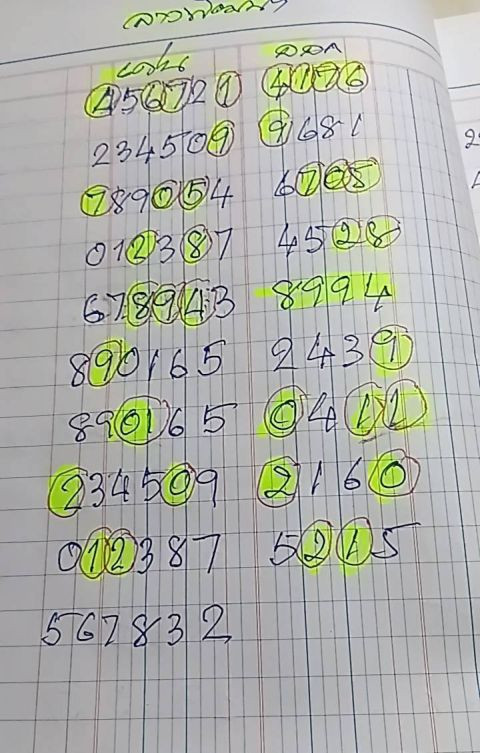 ลาวพัฒนา
เด่น ออก
456721 4176
234509 9681
789054 6708
012387 4528
678943 8994
890165 2439
890165 0411
234509 2160
012387 5215
567832